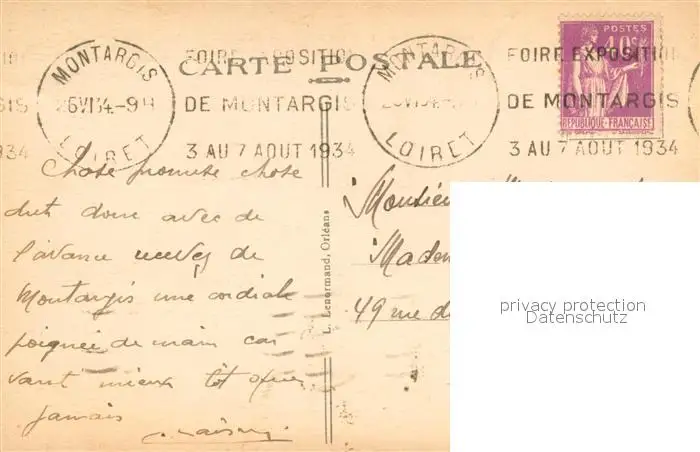 MONTARGIS
26 VI 34-9H
LOIRET
FOIRE EXPOSITION
DE MONTARGIS
3 AU 7 AOUT 1934
CARTE POSTALE
MONTARGIS
LOIRET
FOIRE EXPOSITION
DE MONTARGIS
3 AU 7 AOUT 1934
POSTES
40c
REPUBLIQUE-FRANÇAISE
GIS
934
Chose promise chose
dut donc avec de
l'avance recevez de
Montargis une cordiale
poignée de main car
vaut mieux tôt que
jamais
L. Lenormand, Orléans
Monsieur
Madem
49 rue d
privacy protection
Datenschutz